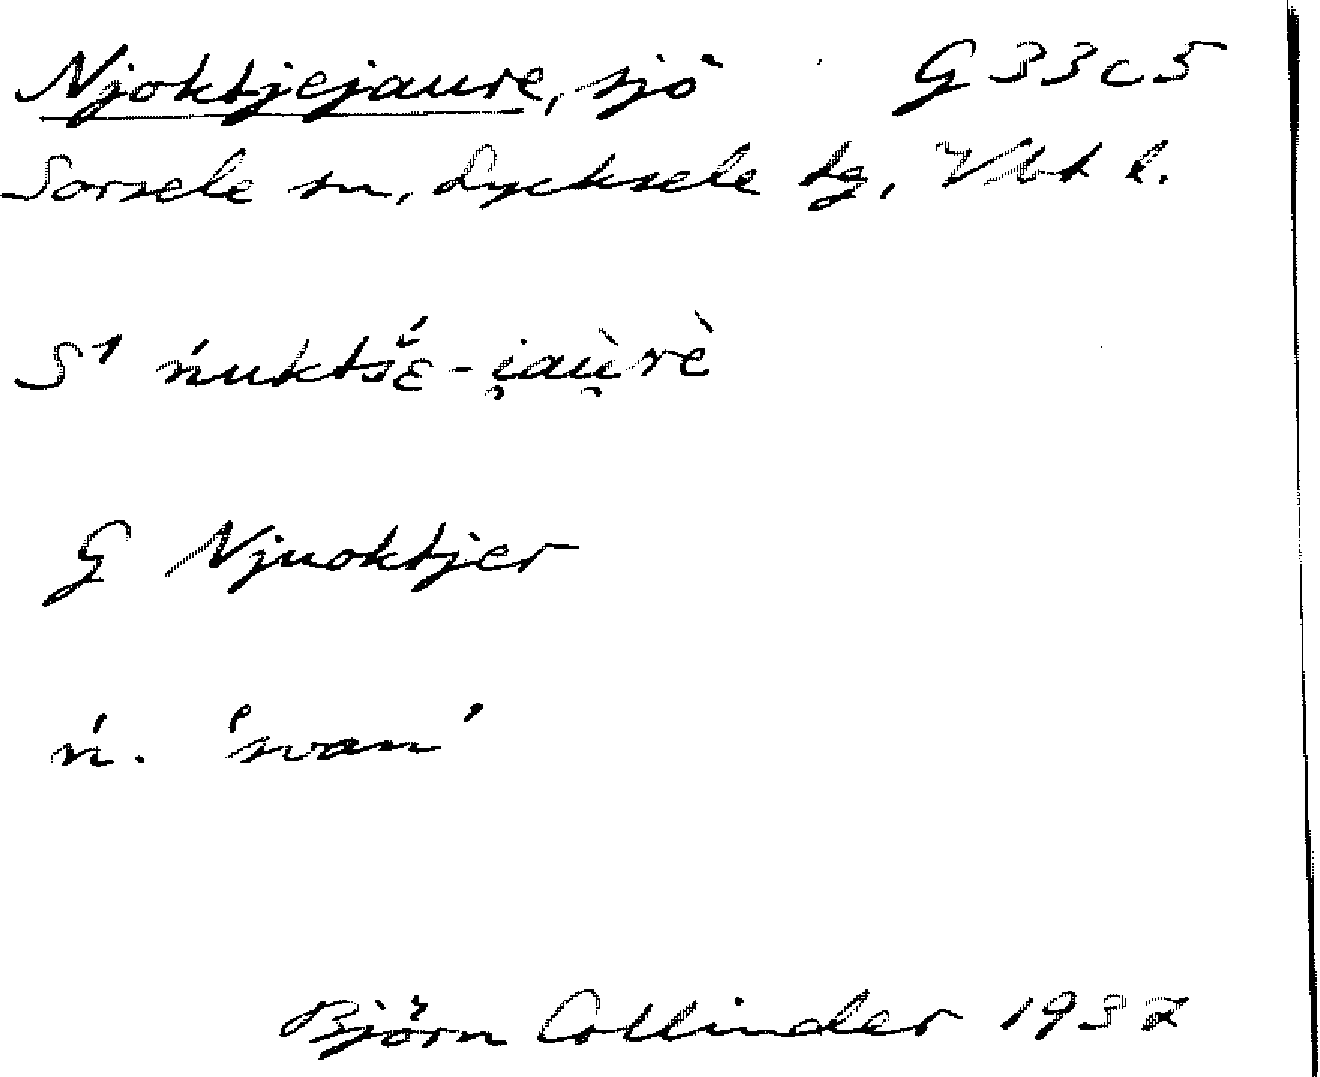 Njoktjejaure, sjö G 33 c 5
Sorsele sn, Lycksele tg, Vbt l.
S1 ńuktšɛ̆́-i̯au̯rè
G Njuoktjer
ń. 'svan'
Björn Collinder 1937